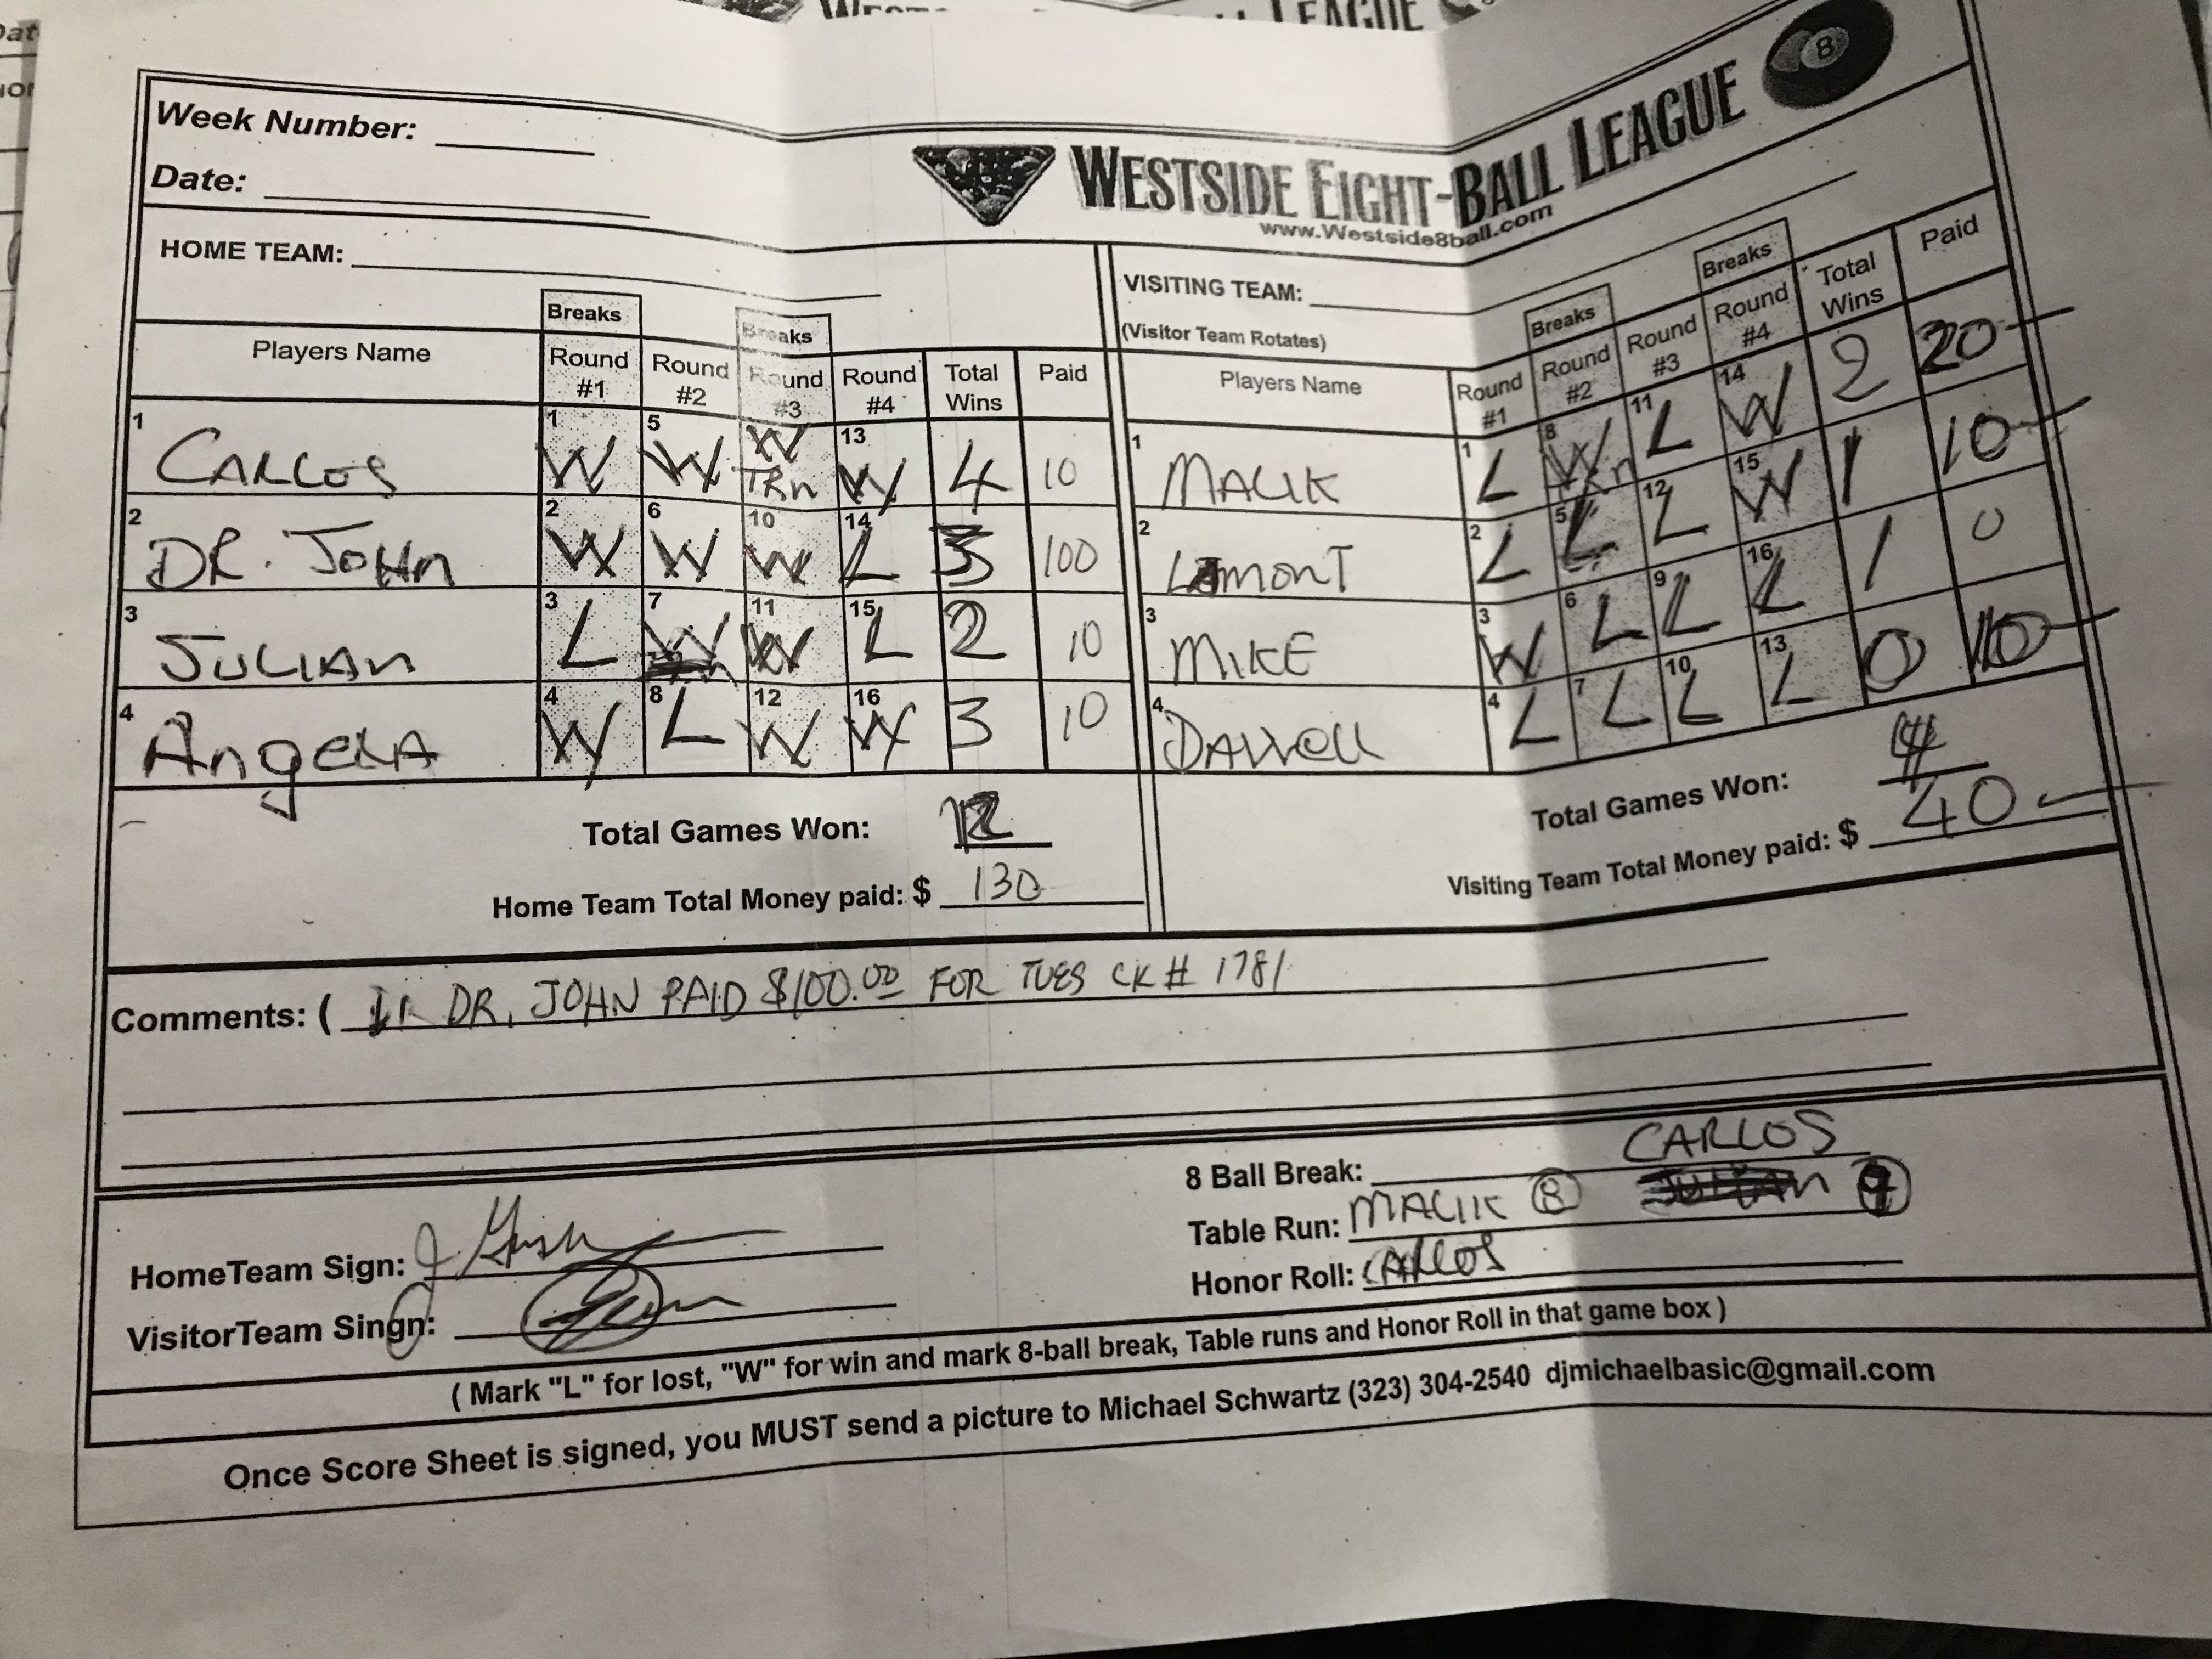 LEAGUE
Week Number:
Date:
WESTSIDE EIGHT-BALL LEAGUE 8
www.Westside8ball.com
HOME TEAM:
Breaks Breaks
Players Name Round #1 Round #2 Round #3 Round #4 Total Wins Paid
1 CARLOS 1 W 5 W W TRn 13 W 4 10
2 DR. JOHn 2 W 6 W 10 W 14 L 3 100
3 JULIAn 3 L 7 W 11 W 15 L 2 10
4 AngelA 4 W 8 L 12 W 16 W 3 10
Total Games Won: 12
Home Team Total Money paid: $ 130
VISITING TEAM:
(Visitor Team Rotates)
Breaks Breaks
Players Name Round #1 Round #2 Round #3 Round #4 Total Wins Paid
1 MALIK 1 L 8 W TRn 11 L 14 W 2 20
2 LAmonT 2 L 5 L 12 L 15 W 1 10
3 MIKE 3 W 6 L 9 L 16 L 1 0
4 DArrell 4 L 7 L 10 L 13 L 0 10
Total Games Won: 4
Visiting Team Total Money paid: $ 40
Comments: ( DR. JOHN PAID $100.00 FOR TUES CK # 1781
8 Ball Break:
CARLOS
Table Run: MALIK 8 9
Honor Roll: CARLOS
HomeTeam Sign:
VisitorTeam Singn:
( Mark "L" for lost, "W" for win and mark 8-ball break, Table runs and Honor Roll in that game box )
Once Score Sheet is signed, you MUST send a picture to Michael Schwartz (323) 304-2540 djmichaelbasic@gmail.com